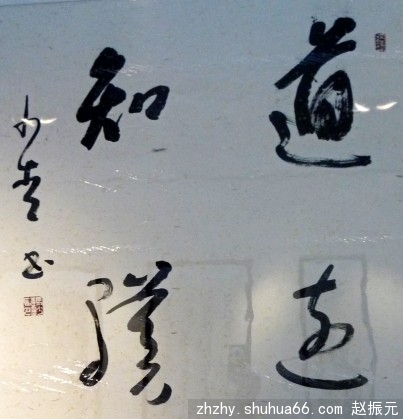 道远
知骥
书
zhzhy.shuhua66.com 赵振元